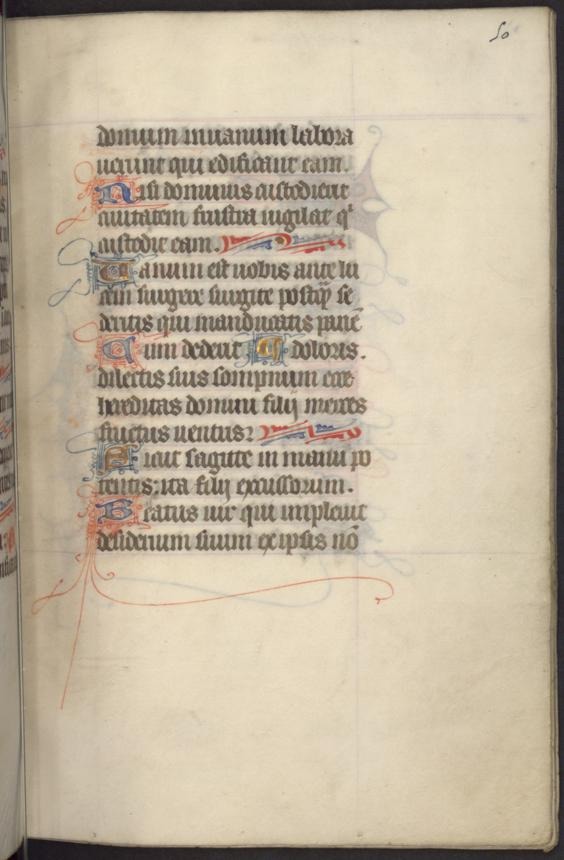 50
domum inuanum labora
uerunt qui edificant eam.
Nisi dominus custodierit
ciuitatem frustra uigilat qͥ
custodit eam.
Uanum est uobis ante lu
cem surgere surgite postqͣ̃ se
deritis qui manducatis panē
Cum dederit doloris.
dilectis suis sompnum ecce
hereditas domini filij merces
fructus uentris:
Sicut sagitte in manu po
tentis: ita filij excussorum.
Beatus uir qui impleuit
desiderium suum ex ipsis nō